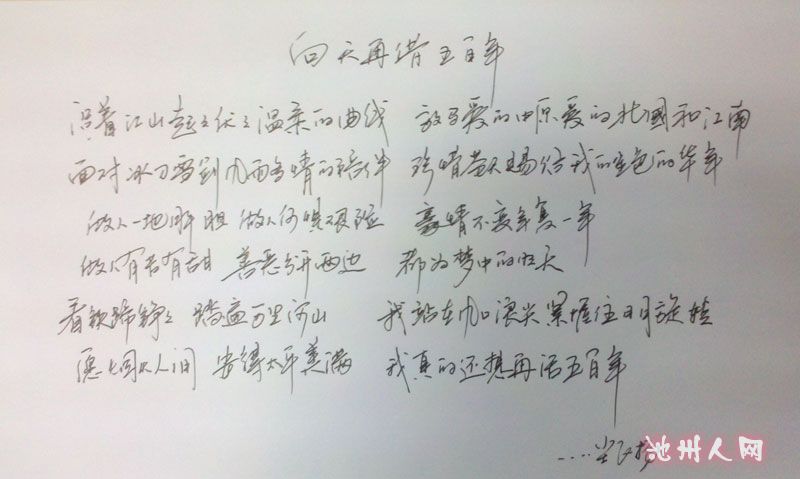 向天再借五百年
沿着江山起々伏々温柔的曲线 放马爱的中原爱的北國和江南
面对冰刀雪剑风雨多情的陪伴 珍惜苍天赐给我的金色的华年
做人一地肝胆 做人何惧艰险 豪情不变年复一年
做人有苦有甜 善恶分开两边 都为梦中的明天
看铁蹄铮々 踏遍万里河山 我站在风口浪尖紧握住日月旋转
愿烟火人间 安得太平美满 我真的还想再活五百年
池州人网